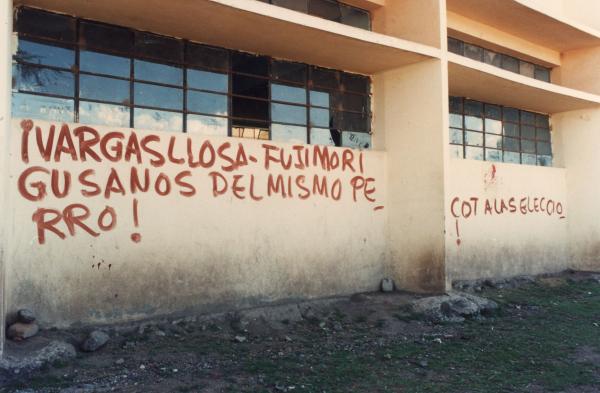 ¡VARGASLLOSA-FUJIMORI
GUSANOS DEL MISMO PE_
RRO!
COT A LAS ELECCIO_
!